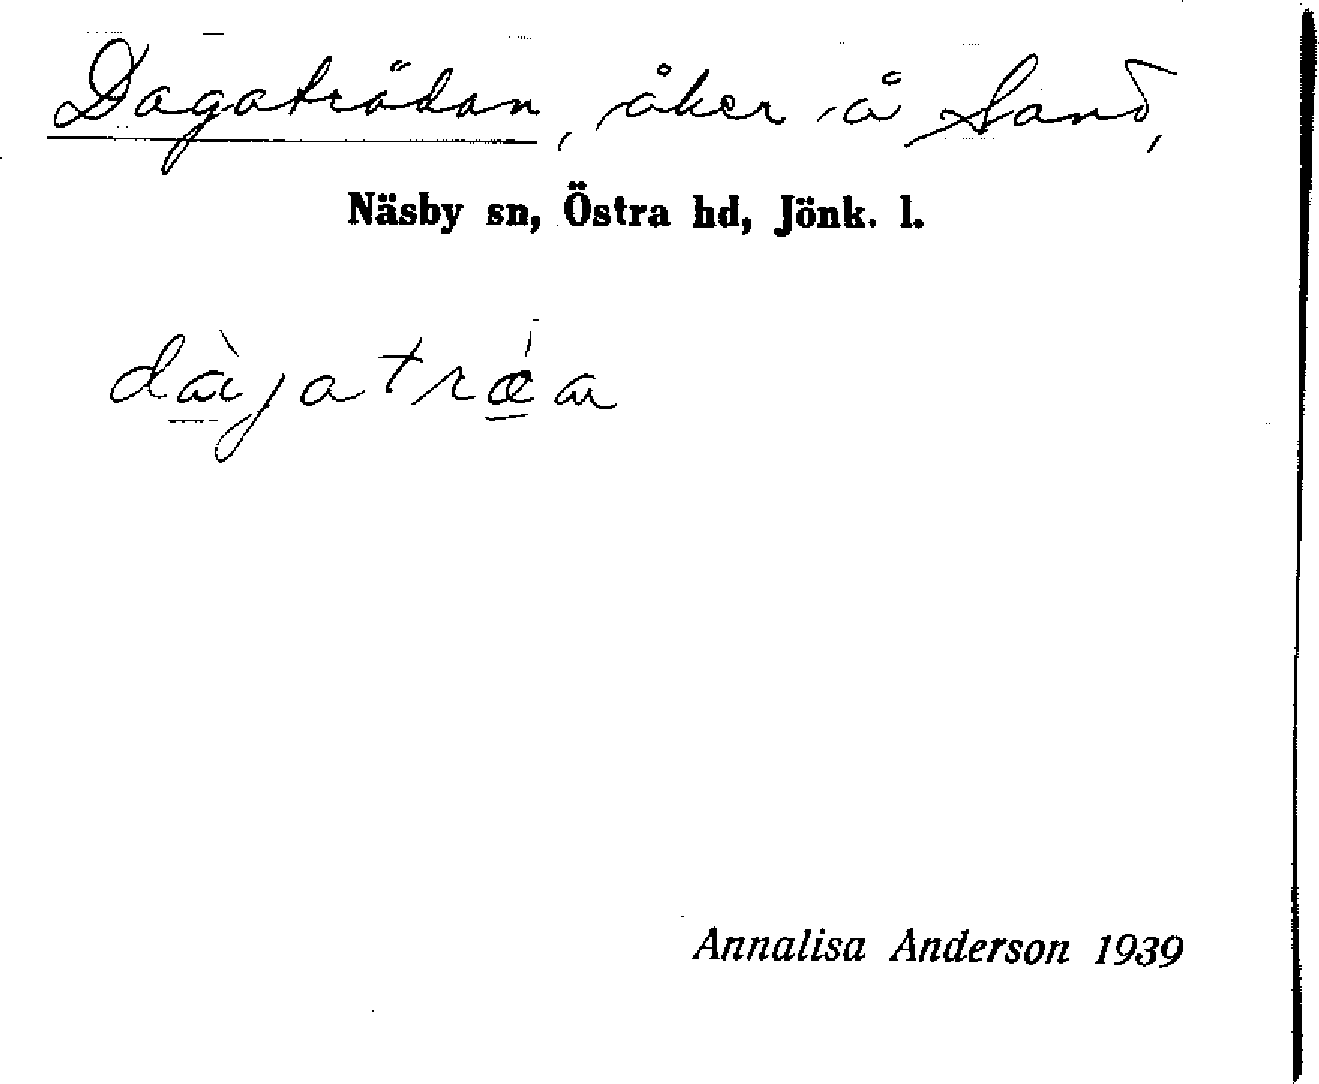 Dagaträdan, åker å Sand,
Näsby sn, Östra hd, Jönk. l.
dàgatrǽa
Annalisa Anderson 1939